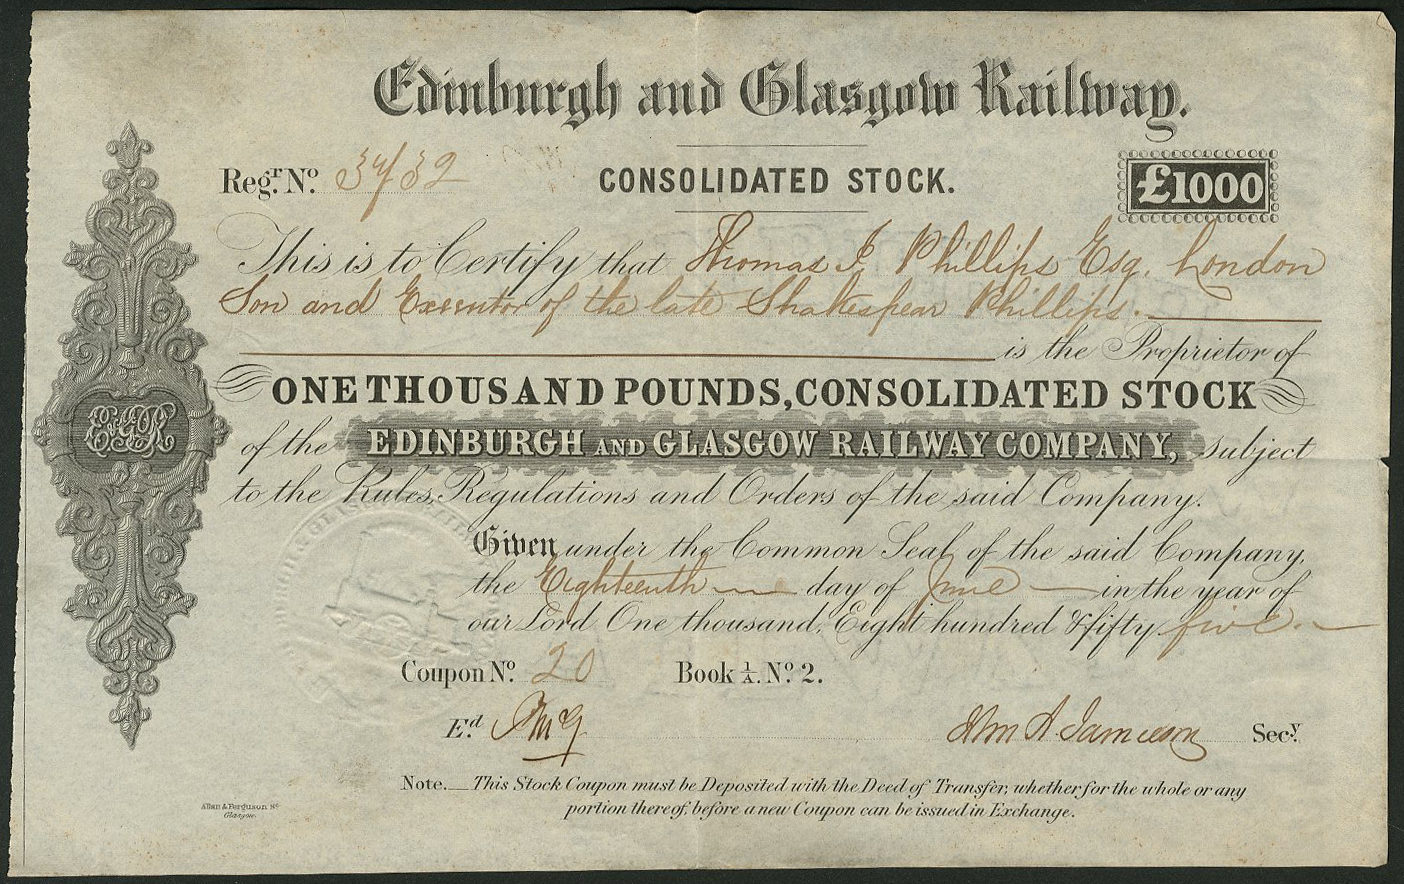 Edinburgh and Glasgow Railway.
Regr. No. 34/32
CONSOLIDATED STOCK.
£1000
This is to Certify that Thomas J Phillips Esq. London
Son and Executor of the late Shakespear Phillips.
is the Proprietor of
ONE THOUSAND POUNDS, CONSOLIDATED STOCK
E&GR
of the EDINBURGH AND GLASGOW RAILWAY COMPANY, subject
to the Rules, Regulations and Orders of the said Company.
Given under the Common Seal of the said Company,
the Eighteenth day of June in the year of
our Lord One thousand, Eight hundred & fifty five.
Coupon No. 20 Book 1/A. No. 2.
Ed. Jno A. Jamieson Secy.
Note.—This Stock Coupon must be Deposited with the Deed of Transfer, whether for the whole or any
portion thereof, before a new Coupon can be issued in Exchange.
Allan & Ferguson
Glasgow.